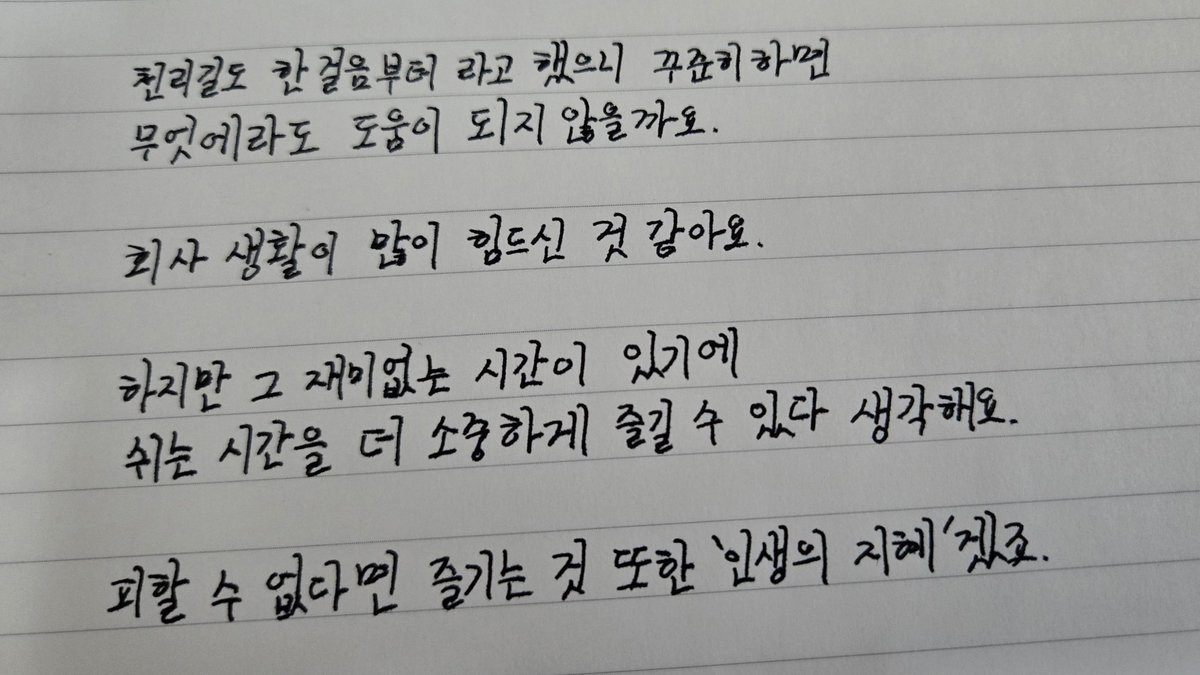 천리길도 한 걸음부터 라고 했으니 꾸준히하면
무엇에라도 도움이 되지 않을까요.
회사 생활이 많이 힘드신 것 같아요.
하지만 그 재미없는 시간이 있기에
쉬는 시간을 더 소중하게 즐길 수 있다 생각해요.
피할 수 없다면 즐기는 것 또한 '인생의 지혜'겠죠.